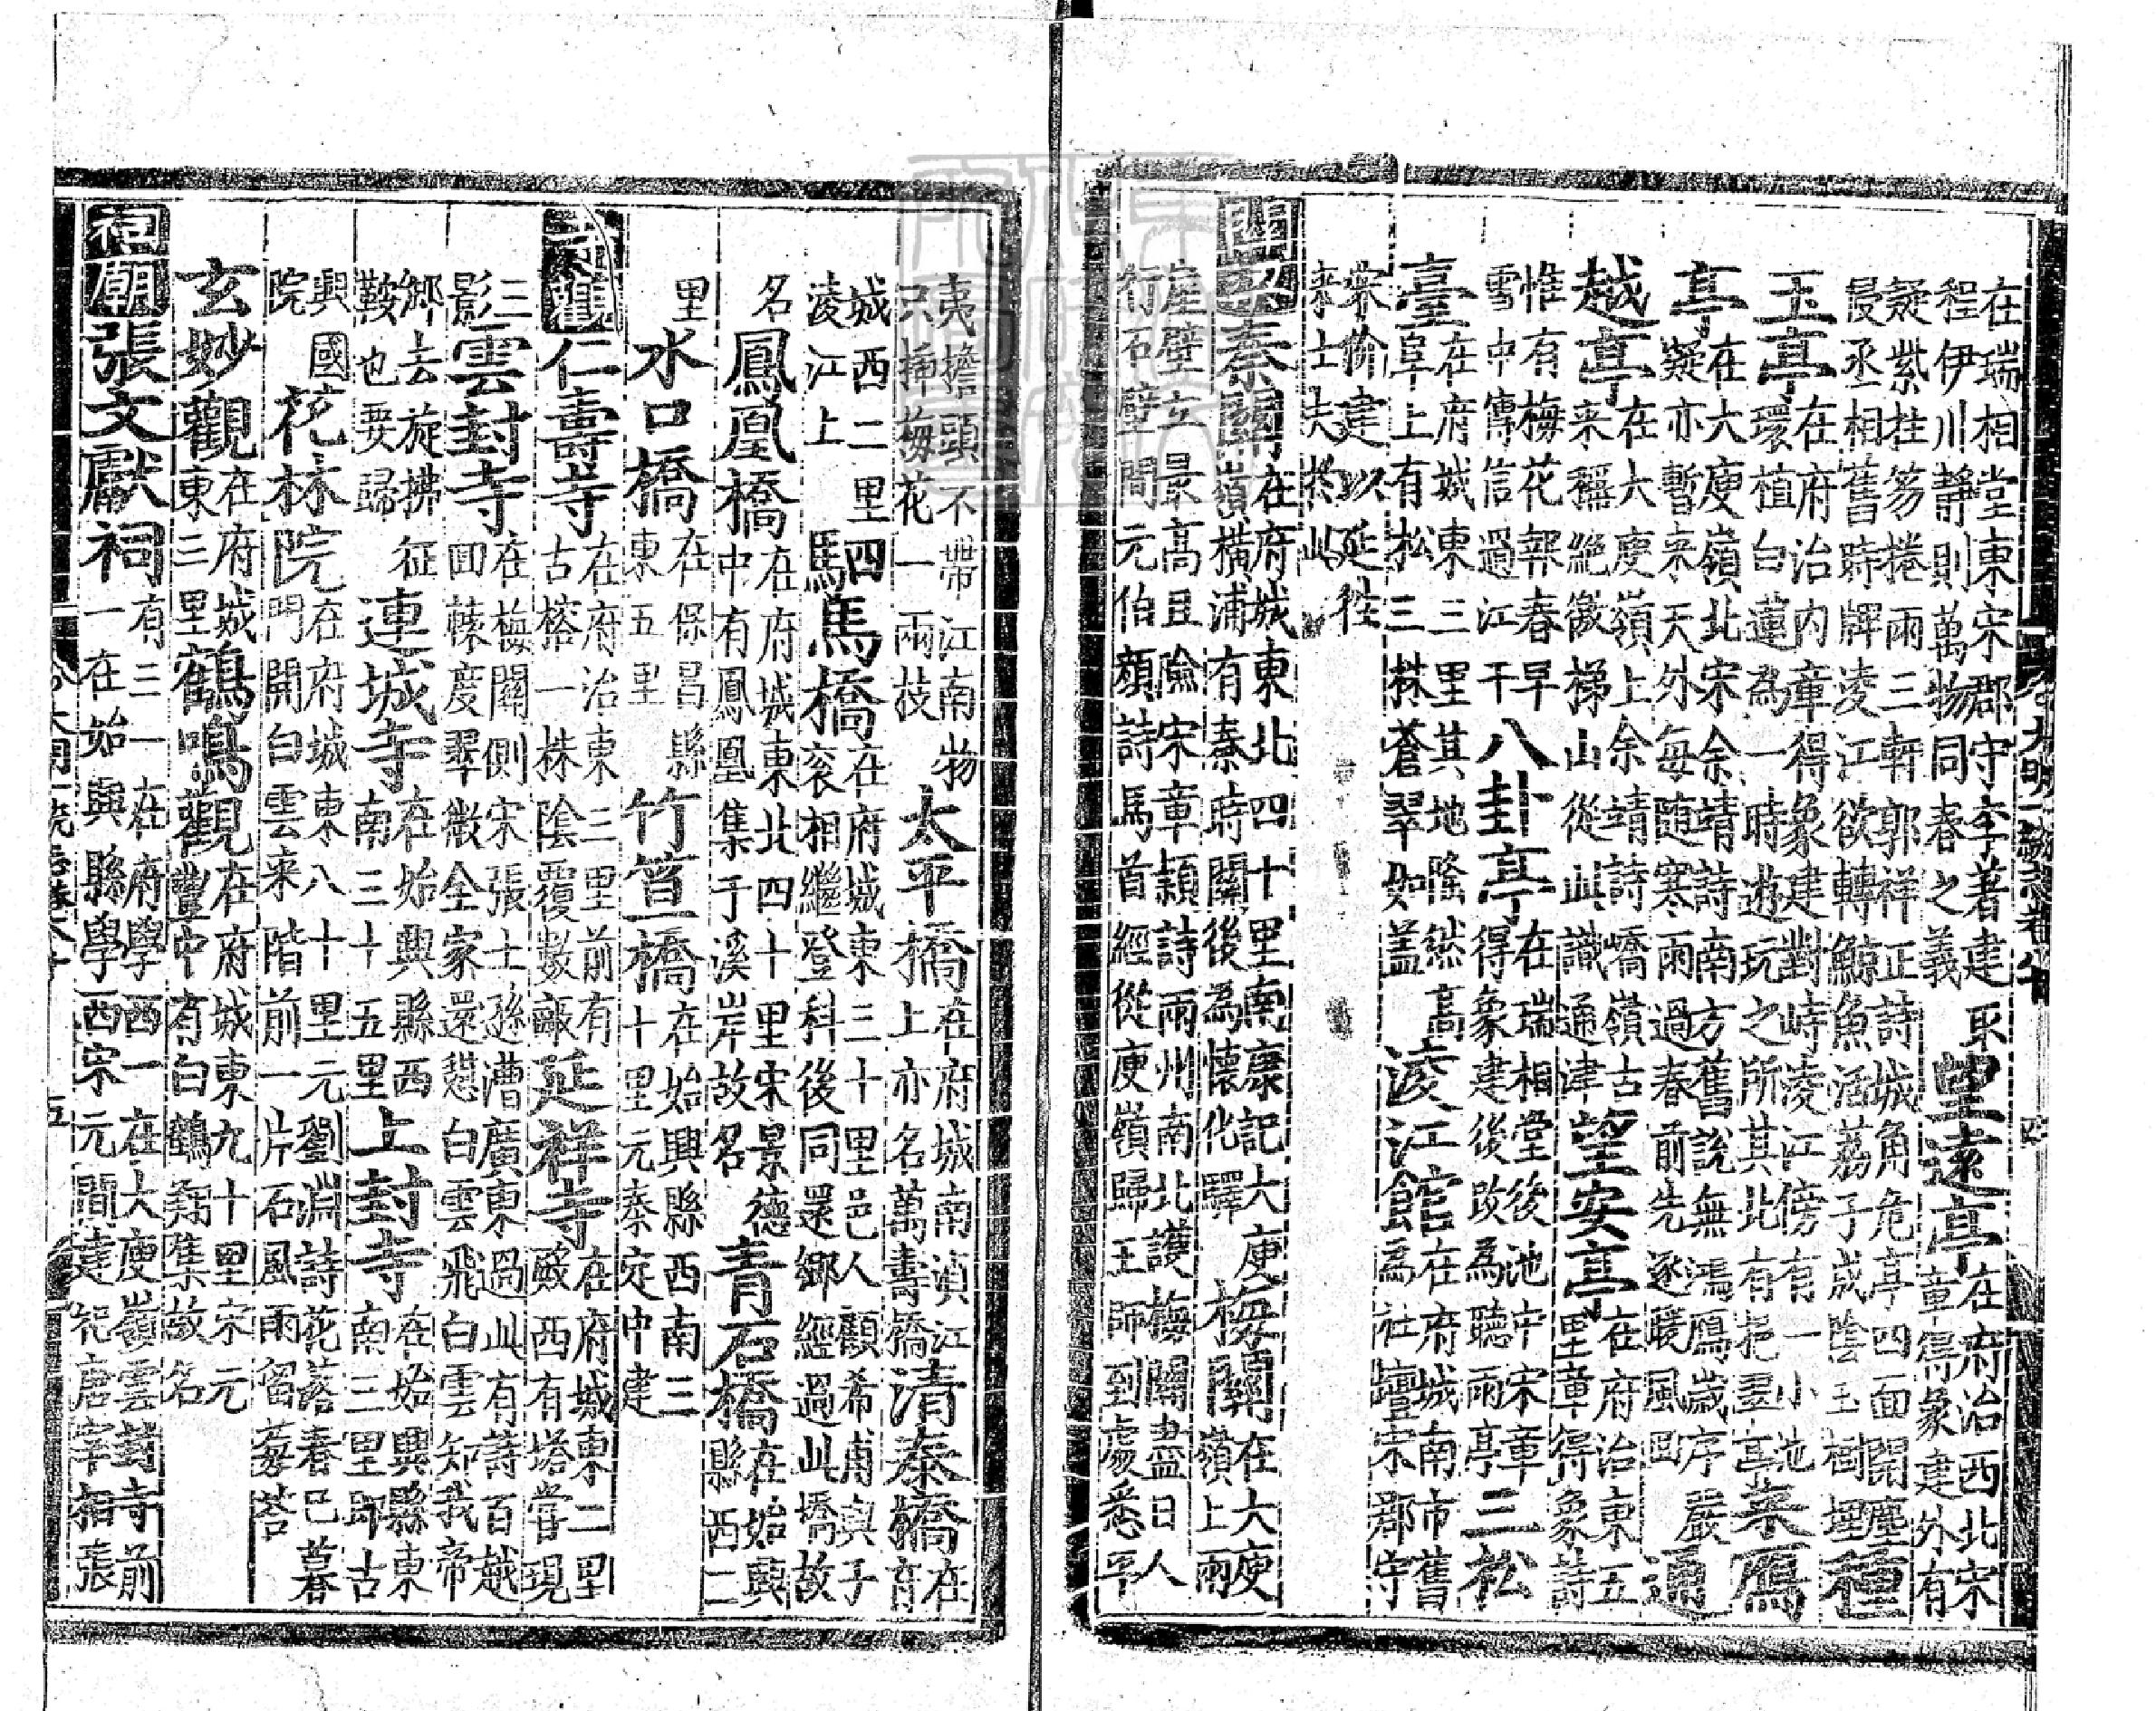 在瑞相堂東宋郡守李著建取
程伊川靜則萬物同春之義
望遠亭
在府治西北宋
章得象建外有
凝紫拄笏捲雨三軒郭祥正詩城角危亭四面開塵
曼丞相舊時牌凌江欲轉鯨魚涵荔子成陰玉樹埋
種
玉亭
在府治内章得象建對峙凌江傍有一小池
環植白蓮為一時遊玩之所其北有挹翠亭
菜鴈
亭
在大庾嶺北宋余靖詩南方舊說無鴻鴈歲序嚴
凝亦暫來天外每随寒雨過春前先逐暖風回
通
越亭
在大庾嶺上余靖詩嶠嶺古
来稱絶徼梯山從此識通津
望安亭
在府治東五
里章得象詩
惟有梅花報春早
雪中傳信過江干
八卦亭
在瑞相堂後池中宋章
得象建後改為聽雨亭
三松
臺
在府城東三里其地隆然高
阜上有松三株蒼翠如盖
凌江館
在府城南市舊
為社壇宋郡守
來士夫於此
秦關
在府城東北四十里南康記大庾
嶺横浦有秦時關後為懷化驛
梅關
在大庾
嶺上兩
崖壁立最高且險宋章頴詩兩州南北護梅關盡日人
行石壁間元伯顔詩馬首經從庾嶺歸王師到處悉平
夷擔頭不帶江南物
只揷梅花一兩枝
太平橋
在府城南湞江
上亦名萬壽橋
清泰橋
在
府
城西二里
凌江上
駟馬橋
在府城東三十里邑人顧希甫真子
衮相繼登科後同還鄉經過此橋故
名
鳳凰橋
在府城東北四十里宋景德
中有鳳凰集于溪岸故名
青石橋
在始興
縣西二
里
水口橋
在保昌縣
東五里
竹筀橋
在始興縣西南三
十里元泰定中建
寺觀
仁壽寺
在府治東三里前有
古榕一株陰覆數畝
延祥寺
在府城東二里
殿西有塔嘗現
三
影
雲封寺
在梅關側宋張士遜漕廣東過此有詩百越
回轅度翠微全家還愬白雲飛白雲知我帝
鄉去旋拂征
鞍也要歸
連城寺
在始興縣西
南三十五里
上封寺
在始興縣東
南三里即古
興國
院
花林院
在府城東八十里元劉淵詩花落春已暮
門開白雲来階前一片石風雨留莓苔
玄妙觀
在府城
東三里
鶴鳴觀
在府城東九十里宋元
豐中有白鶴翔集故名
祠廟
張文獻祠
有三一在府學西一在大庾嶺雲封寺前
一在始興縣學西宋元間建祀唐宰相張